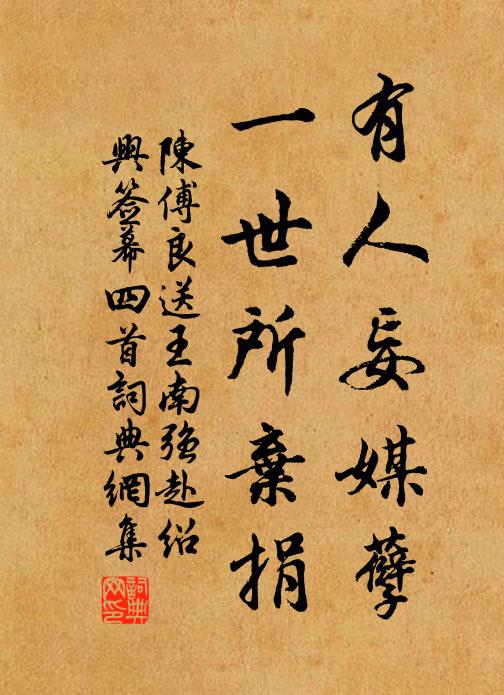 有人妄媒孽
一世所棄捐
陳傅良送王南強赴紹
興簽幕四首詞典網集
詞典网印